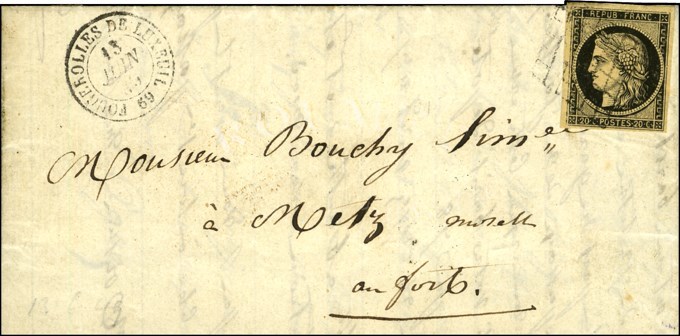 FOUGEROLLES DE LUXEUIL 69
13
JUIN
REPUB. FRANC.
20 c POSTES 20 c
Monsieur Bouchy Simon
à Metz Moselle
au fort.